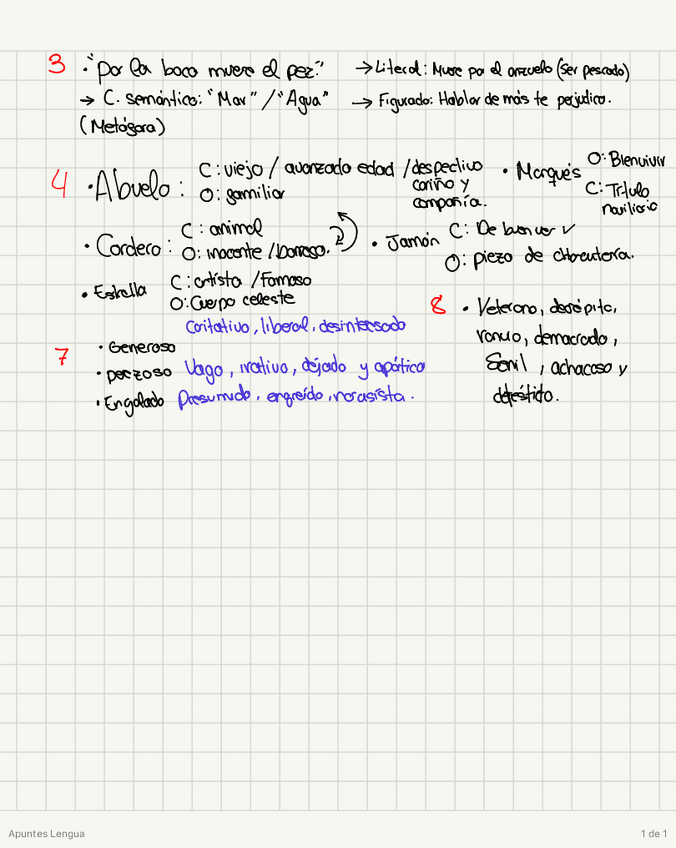 3 · "Por la boca muere el pez." → Literal: Muere por el anzuelo (ser pescado)
→ C. semántico: "Mar" / "Agua" → Figurado: Hablar de más te perjudica.
(Metáfora)
4 · Abuelo: C: viejo / avanzada edad / despectivo
cariño y
compañía.
O: familiar
· Marqués O: Bienvivir
C: Título
· Cordero: C: animal
O: inocente /
· Jamón C: De buen ver
O: pieza de
· Estrella C: artista / Famoso
O: Cuerpo celeste
7 · Generoso caritativo, liberal,
· perezoso Vago, dejado y apático
· Engolado Presumido, engreído,
8 · Veterano, decrépito,
demacrado,
Senil, achacoso y
Apuntes Lengua
1 de 1